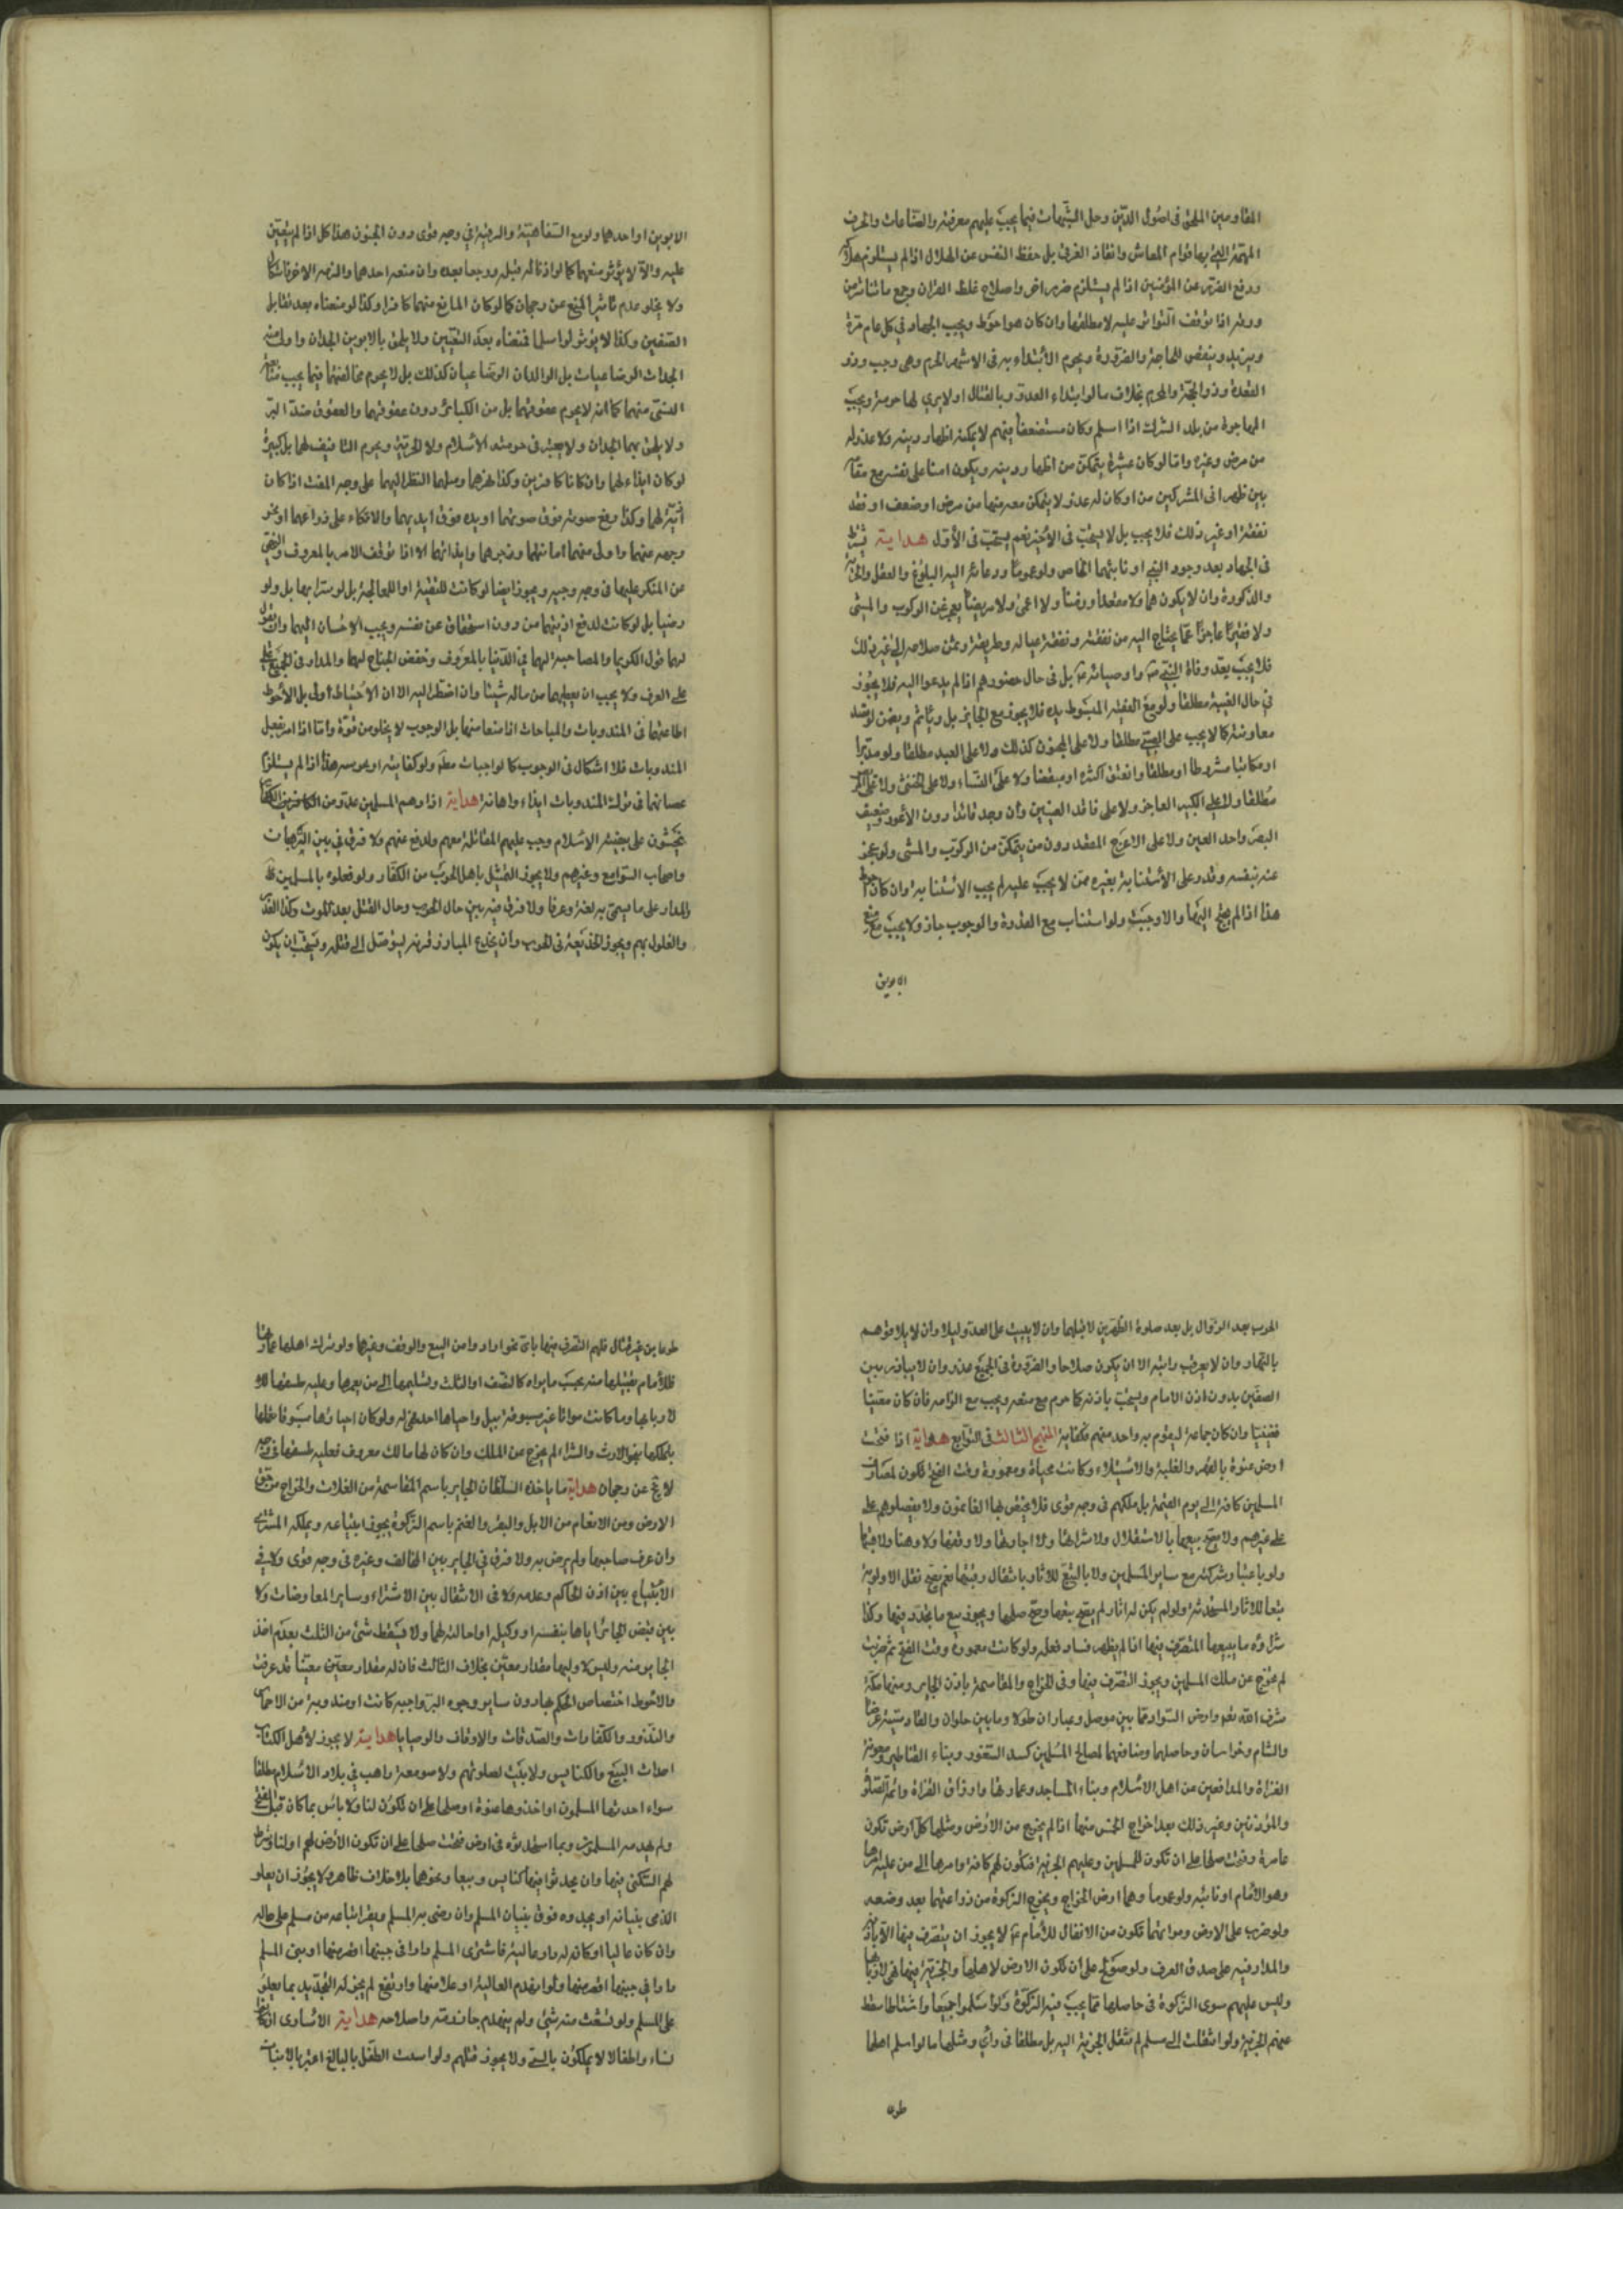 المقاومين الملحق في اصول الدين وحل الشبهات فيما يجب عليهم معرفته والصناعات والحرف
المهمة التي بها قوام المعاش وانقاذ الغرقى بل حفظ النفس عن الهلاك اذا لم يستلزم
ودفع الضرر عن المؤمنين اذا لم يستلزم ضررا واصلاح غلط القران وجمع ما تناثر من
ورقه اذا توقف التواتر عليه لا مطلقا وان كان هو احوط ويجب الجهاد في كل عام مرة
ويزيد وينقص للحاجة والضرورة ويحرم الابتداء به في الاشهر الحرم وهي رجب وذو
القعدة وذو الحجة والمحرم بخلاف ما لو ابتداء العدو بالقتال او لا يرى لها حرمة ويجب
المهاجرة من بلد الشرك اذا اسلم وكان مستضعفا فيهم لا يمكنه اظهار دينه ولا عذر له
من مرض وغيره واما لو كان عشيرة يتمكن من اظهار دينه ويكون امنا على نفسه مع مقامه
بين ظهراني المشركين من او كان له عذر لا يتمكن معه منها من مرض او ضعف او فقد
نفقة او غير ذلك فلا يجب بل لا يستحب في الاخير نعم يستحب في الاول هداية يشترط
في الجهاد بعد وجود النبي او نائبهما الخاص ولو عموما ودعائه اليه البلوغ والعقل والحرية
والذكورة وان لا يكون هما ولا مقعدا وزمنا ولا اعمى ولا مريضا يعجز عن الركوب والمشي
ولا فقيرا عاجزا عما يحتاج اليه من نفقته ونفقة عياله وطريقه وثمن سلاحه الى غير ذلك
فلا يجب بعد وفاة النبي ص واوصيائه ع بل في حال حضورهم اذا لم يدعوا اليه فلا يجوز
في حال الغيبة مطلقا ولو مع الفقيه المبسوط يده فلا يجوز مع الجائر بل وياثم ويضمن لو قصد
معاونته كما لا يجب على الصبي مطلقا ولا على المجنون كذلك ولا على العبد مطلقا ولو مدبرا
او مكاتبا مشروطا او مطلقا وانعتق اكثره او مبعضا ولا على النساء ولا على الخنثى ولا على
مطلقا ولا على الكبير العاجز ولا على فاقد العينين وان وجد قائدا دون الاعور وضعيف
البصر واحد العين ولا على الاعرج المقعد دون من يتمكن من الركوب والمشي ولو عجز
عنه بنفسه وقدر على الاستنابة بغيره ممن لا يجب عليه لم يجب الاستنابة وان كان احوط
هذا اذا لم يحتج اليها والا وجبت ولو استناب مع القدرة والوجوب جاز ولا يجب مع منع
الابوين
الابوين او احدهما ولو مع السفاهة والرقية في وجه قوى دون الجنون هذا كل اذا لم يتعين
عليه والا لا يؤثر منعهما كما لو اذنا له قبله ورجعا بعده وان منعه احدهما والزمه الاخر فاشكال
ولا يخلو عدم تاثير المنع عن رجحان كما لو كان المانع منهما كافرا وكذا لو منعاه بعد تقابل
الصفين وكذا لا يؤثر لو اسلما فمنعاه بعد التعيين ولا يلحق بالابوين الجدان واولى منه
الجدات الرضاعيات بل الوالدان الرضاعيان كذلك بل لا يحرم مخالفتهما فيما يجب متابعة
النسبي منهما كما انه لا يحرم عقوقهما بل من الكبائر دون عقوقهما والعقوق ضد البر
ولا يلحق بهما الجدان ولا يعتبر في حرمته الاسلام ولا الحرية ويحرم التافيف لهما بل كبيرة
لو كان ايذاء لهما وان كانا كافرين وكذا نهرهما ومثلهما النظر اليهما على وجه المقت اذا كان
اذية لهما وكذا رفع صوته فوق صوتهما او يده فوق ايديهما والاتكاء على ذراعهما او نحو
وجهه منهما واولى منهما اهانتهما وضربهما وايذائهما الا اذا توقف الامر بالمعروف والنهي
عن المنكر عليهما في وجه وجيه ويجوز ايضا لو كانت للتقية او للمعالجة بل لو سترا بها بل ولو
رضيا بل لو كانت لدفع اذيتهما من دون استحقاق عن نفسه ويجب الاحسان اليهما وان يقول
لهما قول الكريم والمصاحبة لهما في الدنيا بالمعروف وخفض الجناح لهما والمدار في الجميع على
على العرف ولا يجب ان يعطيهما من ماله شيئا وان اضطرا اليه الا ان الاحتياط اولى بل الاحوط
اطاعتهما في المندوبات والمباحات اذا منعا منهما بل الوجوب لا يخلو من قوة واما اذا امر بفعل
المندوبات فلا اشكال في الوجوب كالواجبات معه ولو كفايته او بحرمه هذا اذا لم يستلزم
عصيانهما في تركه المندوبات ايذاء واهانة هداية اذا دهم المسلمين عدو من الكافرين
يخشون على بيضة الاسلام وجب عليهم المقاتلة معهم والدفع عنهم ولا فرق في بين الرهبان
واصحاب الصوامع وغيرهم ولا يجوز التمثيل باهل الحرب من الكفار ولو فعلوه بالمسلمين
والمدار على ما يسمى به لغة وعرفا ولا فرق فيه بين حال الحرب وحال القتل بعد الموت وكذا الغدر
والغلول بهم ويجوز الخديعة في الحرب وان يخدع المبارز قرنه ليتوصل الى قتله ويستحب ان يكون
الحرب بعد الزوال بل بعد صلوة الظهرين لا قبلهما وان لا يبيت على العدو ليلا وان لا يلاقوهم
بالنهار وان لا يعرقب دابته الا ان يكون صلاحا والضرورة في الجميع عذر وان لا يبارز بين
الصفين بدون اذن الامام ويستحب باذنه كما حرم مع منعه ويجب مع الزامه فان كان معينا
فعينيا وان كان جماعة ليقوم به واحد منهم فكفاية المنهج الثالث في التوابع هداية اذا فتحت
ارض عنوة بالقهر والغلبة والاستيلاء وكانت محياة ومعمورة وقت الفتح تكون لمصارف
المسلمين كافة الى يوم القيمة بل ملكهم في وجه قوى فلا يختص بها الغانمون ولا يفضلوهم على
على غيرهم ولا يصح بيعها بالاستقلال ولا شرائها ولا اجارتها ولا وقفها ولا رهنا ولا هبتها
ولو باعتبار شركته مع ساير المسلمين ولا بالتبع للاثار بانتقال رقبتها نعم يصح نقل الاولوية
تبعا للاثار المستحدثة ولو لم يكن له اثار لم يصح بيعها وصح صلحها ويجوز بيع ما يتجدد فيها وكذا
شراؤه ما يبيعها المتصرف فيها اذا لم يظهر فساد فعله ولو كانت معمورة وقت الفتح ثم خربت
لم تخرج عن ملك المسلمين ويجوز التصرف فيها وفي الخراج والمقاسمة باذن الجاير ومنها مكة
شرف الله نعم وارض السواد مما بين موصل وعبادان طولا وما بين حلوان والقادسية عرضا
والشام وخراسان وحاصلهما ومنافعهما لمصالح المسلمين كسد الثغور وبناء القناطير ومعونة
الغزاة والمدافعين عن اهل الاسلام وبناء المساجد وعمارتها وارزاق القراء وائمة الصلوة
والمؤذنين وغير ذلك بعد اخراج الخمس منها اذا لم يخرج من الارض ومثلها كل ارض تكون
عامرة وفتحت صلحا على ان تكون للمسلمين وعليهم الجزية فتكون لهم كافة وامرها الى من عليه امرها
وهو الامام او نائبه ولو عموما وهما ارض الخراج ويخرج الزكوة من زراعتهما بعد وضعه
ولو ضرب على الارض ومواتهما تكون من الانفال للامام ع لا يجوز ان يتصرف فيها الا باذنه
والمدار فيه على صدق العرف ولو صولح على ان تكون الارض لاهلها والجزية فيها فهي لاربابها
وليس عليهم سوى الزكوة في حاصلها مما يجب فيه الزكوة ولو اسلموا جميعا واشتاطا سقط
عنهم الجزية ولو انتقلت الى مسلم لم تنتقل الجزية اليه بل مطلقا في رأي ومثلها ما لو اسلم اهلها
طوعا
طوعا من غير قتال فلهم التصرف فيها باي نحو ارادوا من البيع والوقف وغيرها ولو ترك اهلها عمارتها
فللامام تقبيلها منه بحسب ما يراه كالنصف او الثلث وتسليمها الى من يعمرها وعليه طسقها
لاربابها وما كانت مواتا غير مسبوقة بيد واحياها احد فهي له ولو كان احياؤها مسبوقا فلها
بالملكها بنحو الارث والشراء لم يخرج عن الملك وان كان لها مالك معروف فعليه طسقها في وجه
لا يخ عن رجحان هداية ما ياخذه السلطان الجاير باسم المقاسمة من الغلات والخراج من
الارض ومن الانعام من الابل والبقر والغنم باسم الزكوة يجوز ابتياعه ويملكه المشتري
وان عرف صاحبها ولم يرض به ولا فرق في الجاير بين المخالف وغيره في وجه قوى ولا في
الابتياع بين اذن الحاكم وعدمه ولا في الانتقال بين الاشتراء وساير المعاوضات ولا
بين قبض الجائر اياها بنفسه او وكيله او احالته لهما ولا يسقط شئ من الثلث بعدم اخذ
الجاير منه وليس لاوليهما مقدار معين بخلاف الثالث فان له مقدار معين معينا قد عرفت
والاحوط اختصاص الحكم بها دون ساير وجوه البر واجبة كانت او مندوبة من الاخماس
والنذور والكفارات والصدقات والاوقاف والوصايا هداية لا يجوز لاهل الكتاب
احداث البيع والكنايس ولا بيت لصلوتهم ولا صومعة راهب في بلاد الاسلام مطلقا
سواء احدثها المسلمون او اخذوها عنوة او صلحا على ان تكون لنا ولا باس بما كان قبل الفتح
ولم يهدمه المسلمون وبما استحدثوه في ارض فتحت صلحا على ان تكون الارض لهم او لنا وشرط
لهم السكنى فيها وان يحدثوا فيها كنايس وبيعا ونحوها بلا خلاف ظاهر ولا يجوز ان يعلو
الذمى بنيانه او يجدده فوق بنيان المسلم وان رضى به المسلم ويقر ابتاعه من مسلم على حاله
وان كان عاليا او كان له دار عالية فاشترى المسلم دارا في جنبها اقصر منها او بنى المسلم
دارا في جنبها اقصر منها ولو انهدم العالية او علا منها وارتفع لم يجز له التجديد بما يعلو
على المسلم ولو تشعث منه شئ ولم ينهدم جاز رمته واصلاحه هداية الاسارى اذا كانوا
نساء واطفالا لا يملكون بالسبي ولا يجوز قتلهم ولو اسدت الطفل بالبالغ اعتبر بالانبات